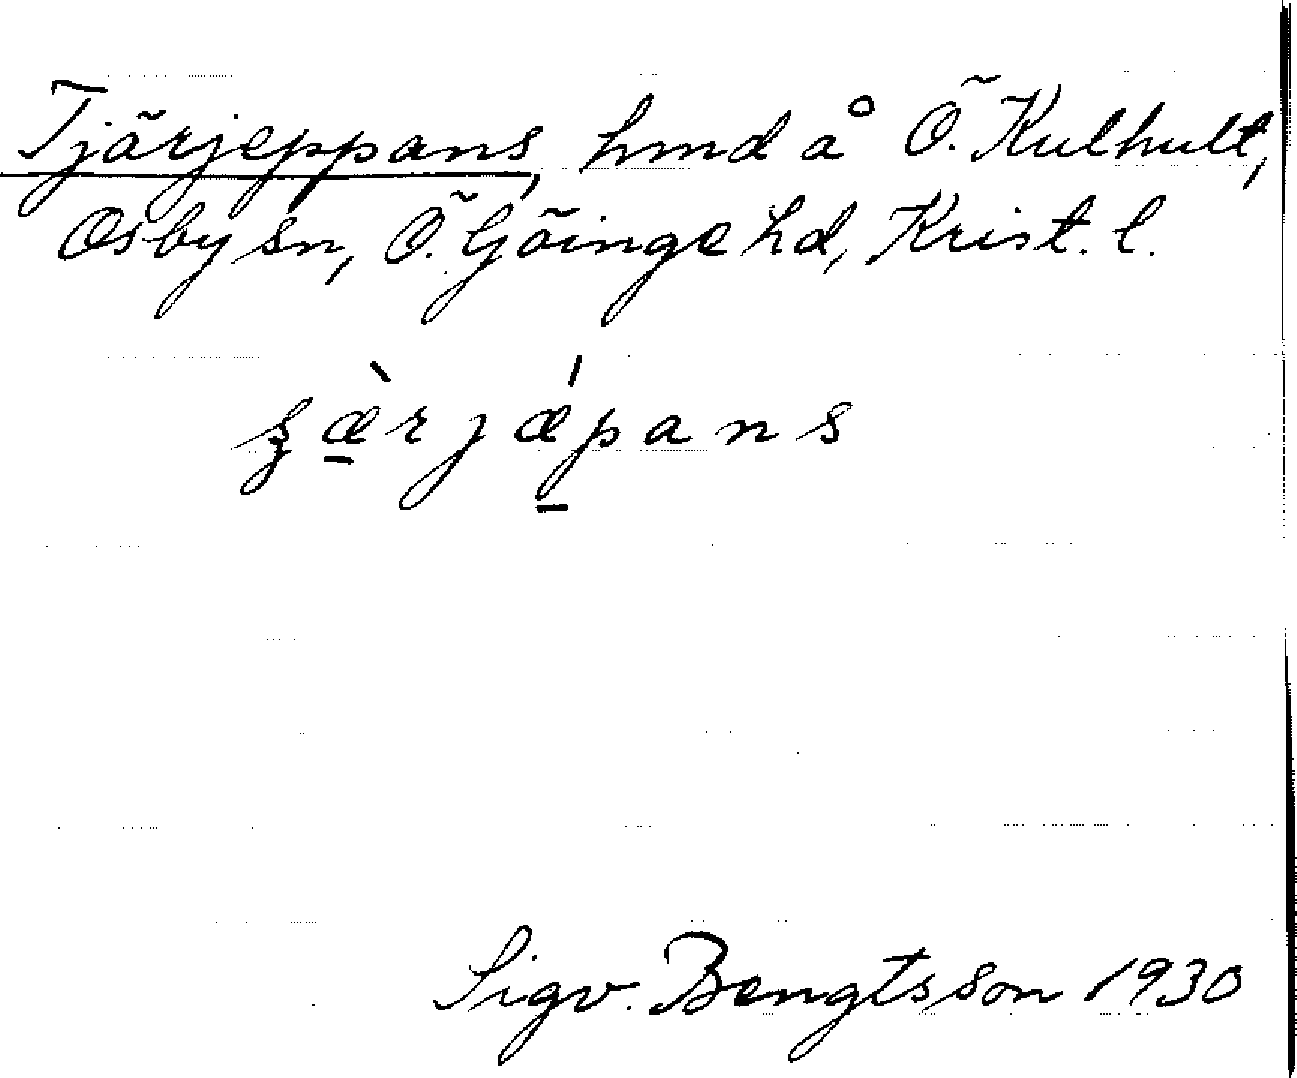 Tjärjeppans, hmd å Ö. Kulhult,
Osby sn, Ö. Göinge hd, Krist. l.
Sigv. Bengtsson 1930